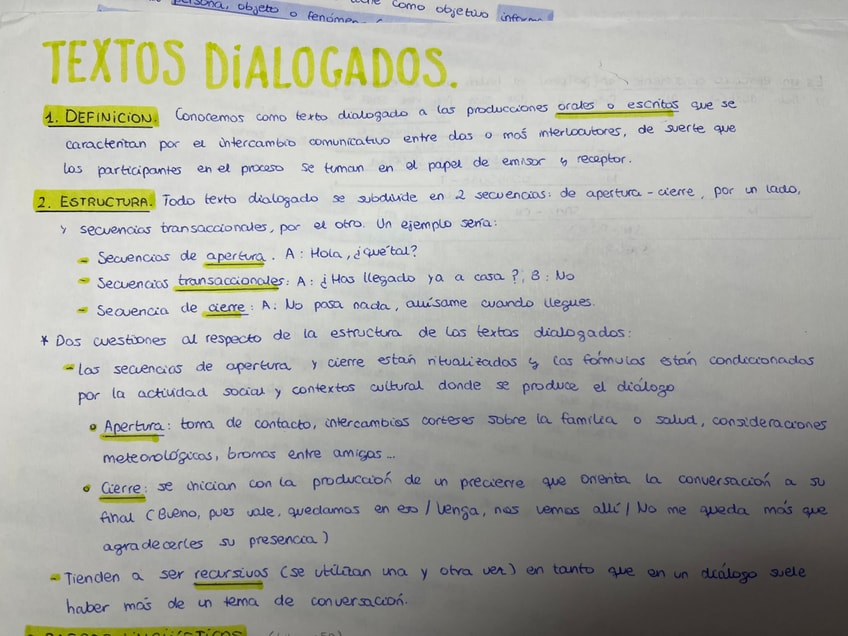 persona, objeto o fenómeno como objetivo informa
TEXTOS DiALOGADOS.
1. DEFINICION. Conocemos como texto dialogado a las producciones orales o escritas que se
caracterizan por el intercambio comunicativo entre dos o más interlocutores, de suerte que
los participantes en el proceso se turnan en el papel de emisor y receptor.
2. ESTRUCTURA. Todo texto dialogado se subdivide en 2 secuencias: de apertura - cierre, por un lado,
y secuencias transaccionales, por el otro. Un ejemplo sería:
- Secuencias de apertura. A: Hola, ¿qué tal?
- Secuencias transaccionales: A: ¿Has llegado ya a casa?, B: No
- Secuencia de cierre: A: No pasa nada, avísame cuando llegues.
* Dos cuestiones al respecto de la estructura de los textos dialogados:
- Las secuencias de apertura y cierre están ritualizados y las fórmulas están condicionadas
por la actividad social y contextos cultural donde se produce el diálogo
• Apertura: toma de contacto, intercambios corteses sobre la familia o salud, consideraciones
meteorológicas, bromas entre amigas...
• Cierre: se inician con la producción de un precierre que orienta la conversación a su
final (Bueno, pues vale, quedamos en eso / Venga, nos vemos allí / No me queda más que
agradecerles su presencia)
- Tienden a ser recursivas (se utilizan una y otra vez) en tanto que en un diálogo suele
haber más de un tema de conversación.